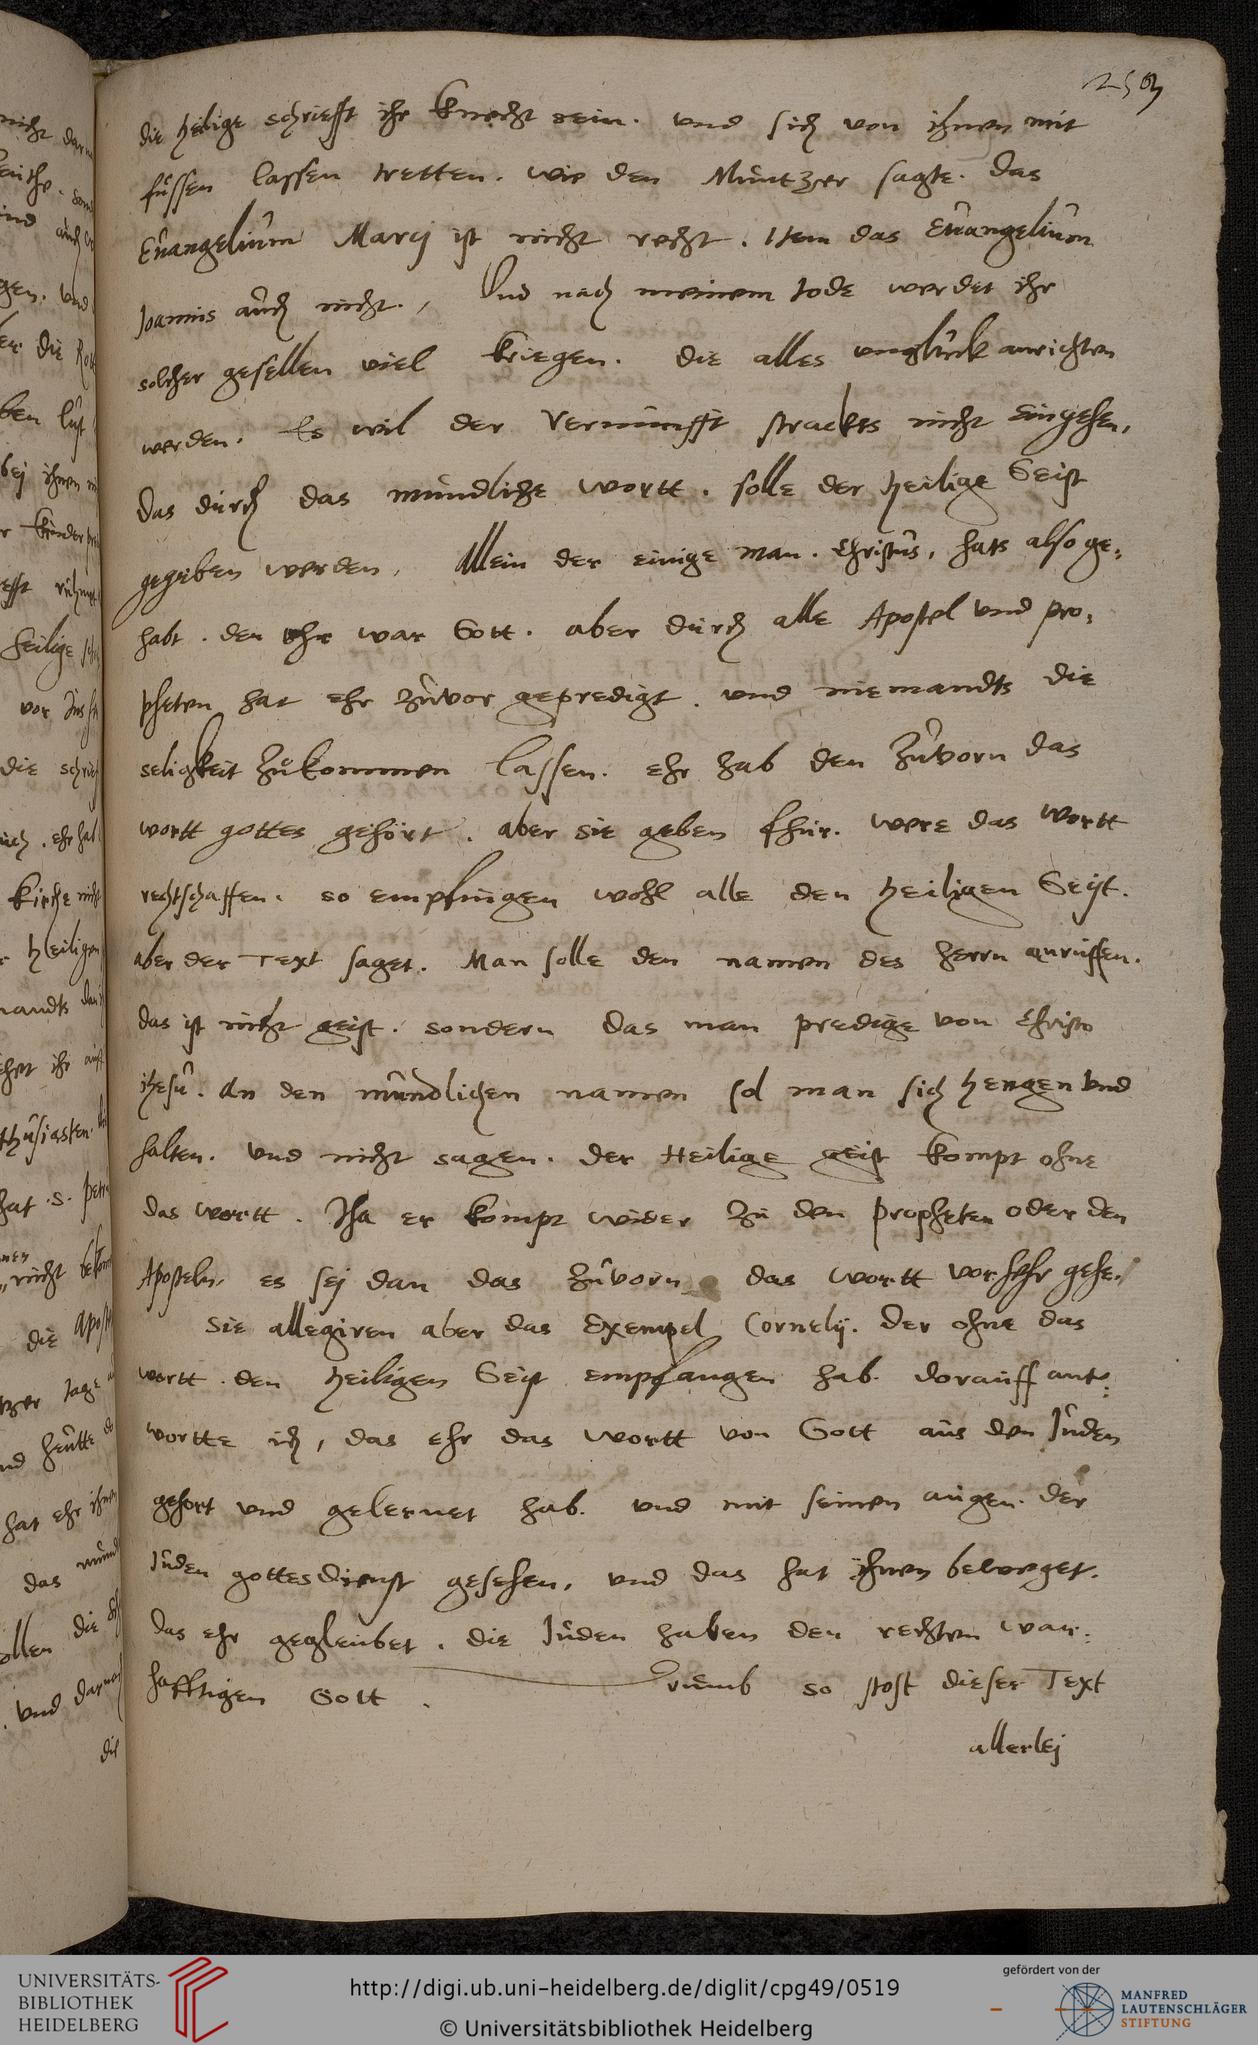 259
die heilige schriefft ihr knecht sein. und sich von ihnen mit
füssen lassen tretten. wie den Müntzer sagte. Das
Euangelium Marcj ist nicht recht. Item das Euangelium
Joannis auch nicht., Und nach meinem tode werdet ihr
solcher gesellen viel kriegen. die alles unglück anrichten
werden. Es wil der Vernunfft strackts nicht eingehen,
das durch das mündliche wortt. solle der heilige Geist
gegeben werden, Allein der einige man. Christus, hats also ge,
habt. den ehr war Gott. aber durch alle Apostel und pro,
pheten hat ehr zuvor gepredigt. und niemandts die
seligkeit zukommen lassen. ehr hab den zuvorn das
wortt gottes gehört. aber sie geben fhür. were das wortt
rechtschaffen. so empfingen wohl alle den heiligen Geist.
aber der Text saget. Man solle den namen des herrn anruffen.
das ist nicht geist. sondern das man predige von Christo
ihesu. An den mündlichen namen sol man sich hengen und
halten. und nicht sagen. der Heilige geist kompt ohne
das wortt. Iha er kompt wider zu den propheten oder den
Aposteln, es sej dan das zuvorn das wortt vorhehr gehe.
Sie allegiren aber das Exempel Cornelij. der ohne das
wortt. den heiligen Geist empfangen hab. dorauff ant,
wortte ich, das ehr das wortt von Gott aus den Juden
gehort und gelernet hab. und mit seinen augen. der
Juden gottesdienst gesehen, und das hat ihnen beweget.
das ehr gegleubet. die Juden haben den rechten war,
hafftigen Gott. Drumb so stost dieser Text
allerlej
UNIVERSITÄTS-
BIBLIOTHEK
HEIDELBERG
http://digi.ub.uni-heidelberg.de/diglit/cpg49/0519
© Universitätsbibliothek Heidelberg
gefördert von der
MANFRED
LAUTENSCHLÄGER
STIFTUNG